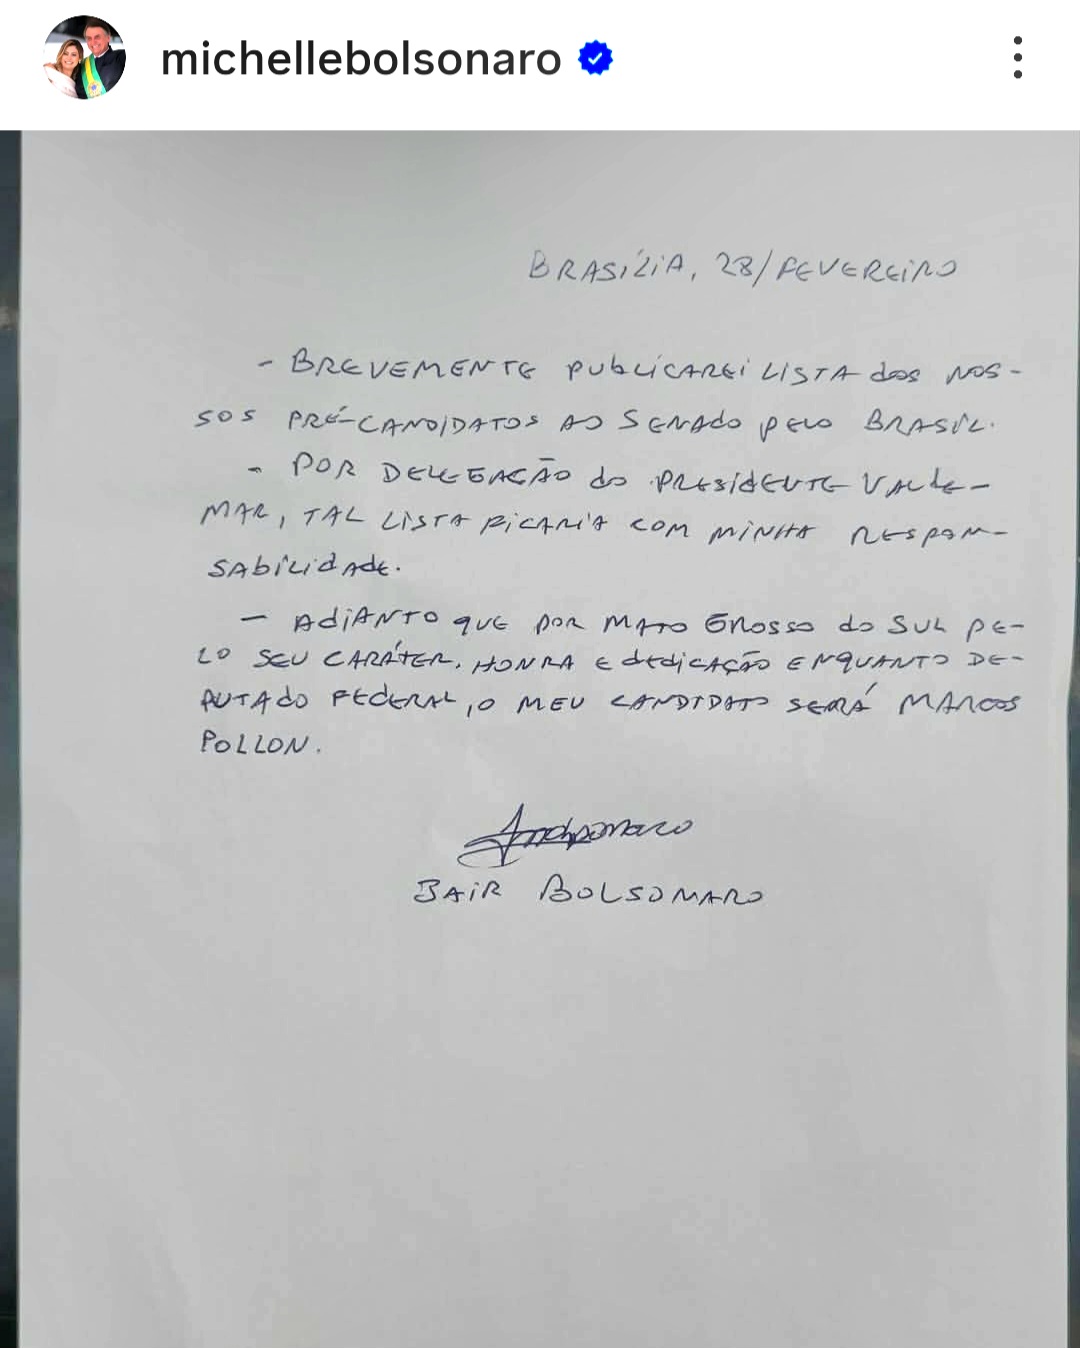 michellebolsonaro
BRASÍLIA, 28/FEVEREIRO
- BREVEMENTE PUBLICAREI LISTA dos NOS-
SOS PRÉ-CANDIDATOS AO SENADO PELO BRASIL.
- POR DELEGAÇÃO do PRESIDENTE VALDE-
MAR, TAL LISTA FICARIA COM MINHA RESPON-
SABILIDADE.
- ADIANTO QUE POR MATO GROSSO do SUL PE-
LO SEU CARÁTER, HONRA E dEdICAÇÃO ENQUANTO DE-
PUTADO FEDERAL, O MEU CANDIDATO SERÁ MARCOS
POLLON.
JAIR BOLSONARO